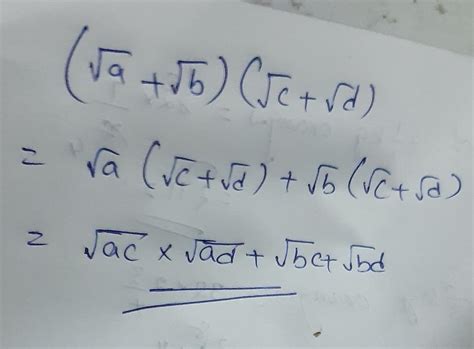 (√a + √b) (√c + √d)
= √a (√c + √d) + √b (√c + √d)
= √ac × √ad + √bc + √bd